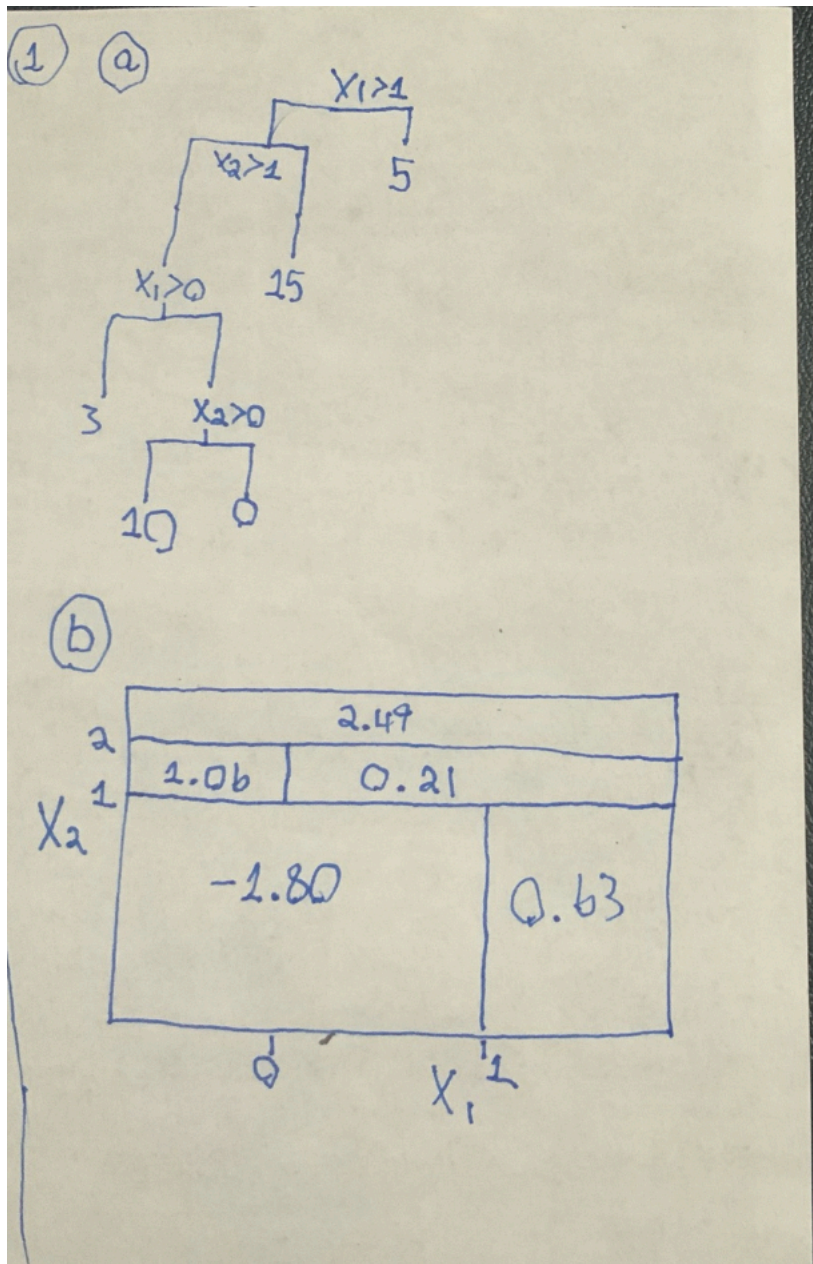 1 a
X₁>1
X₂>1
5
X₁>0 15
3 X₂>0
10 0
b
2.49
2
1.06 0.21
1
X₂
-1.80 0.63
0 1
X₁